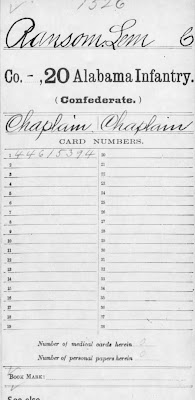 1326
Ransom, Lem C
Co. - , 20 Alabama Infantry.
(Confederate.)
Chaplain Chaplain
CARD NUMBERS.
1 44615394 20
2 21
3 22
4 23
5 24
6 25
7 26
8 27
9 28
10 29
11 30
12 31
13 32
14 33
15 34
16 35
17 36
18 37
19 38
Number of medical cards herein 0
Number of personal papers herein 0
BOOK MARK:
See also